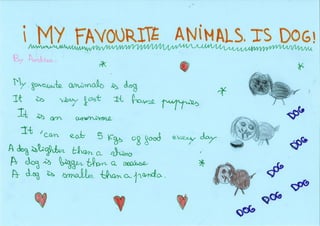 ¡ MY FAVOURITE ANIMALS. IS DOG!
By Andrea.
My favourite animals is dog
It is very fast It house puppies
It is an omnivore
It can eat 5 Kgs of food every day.
A dog is lighter than a rhino
A dog is bigger than a mouse
A dog is smaller than a panda.
DOG
DOG
DOG
DOG
DOG
DOG